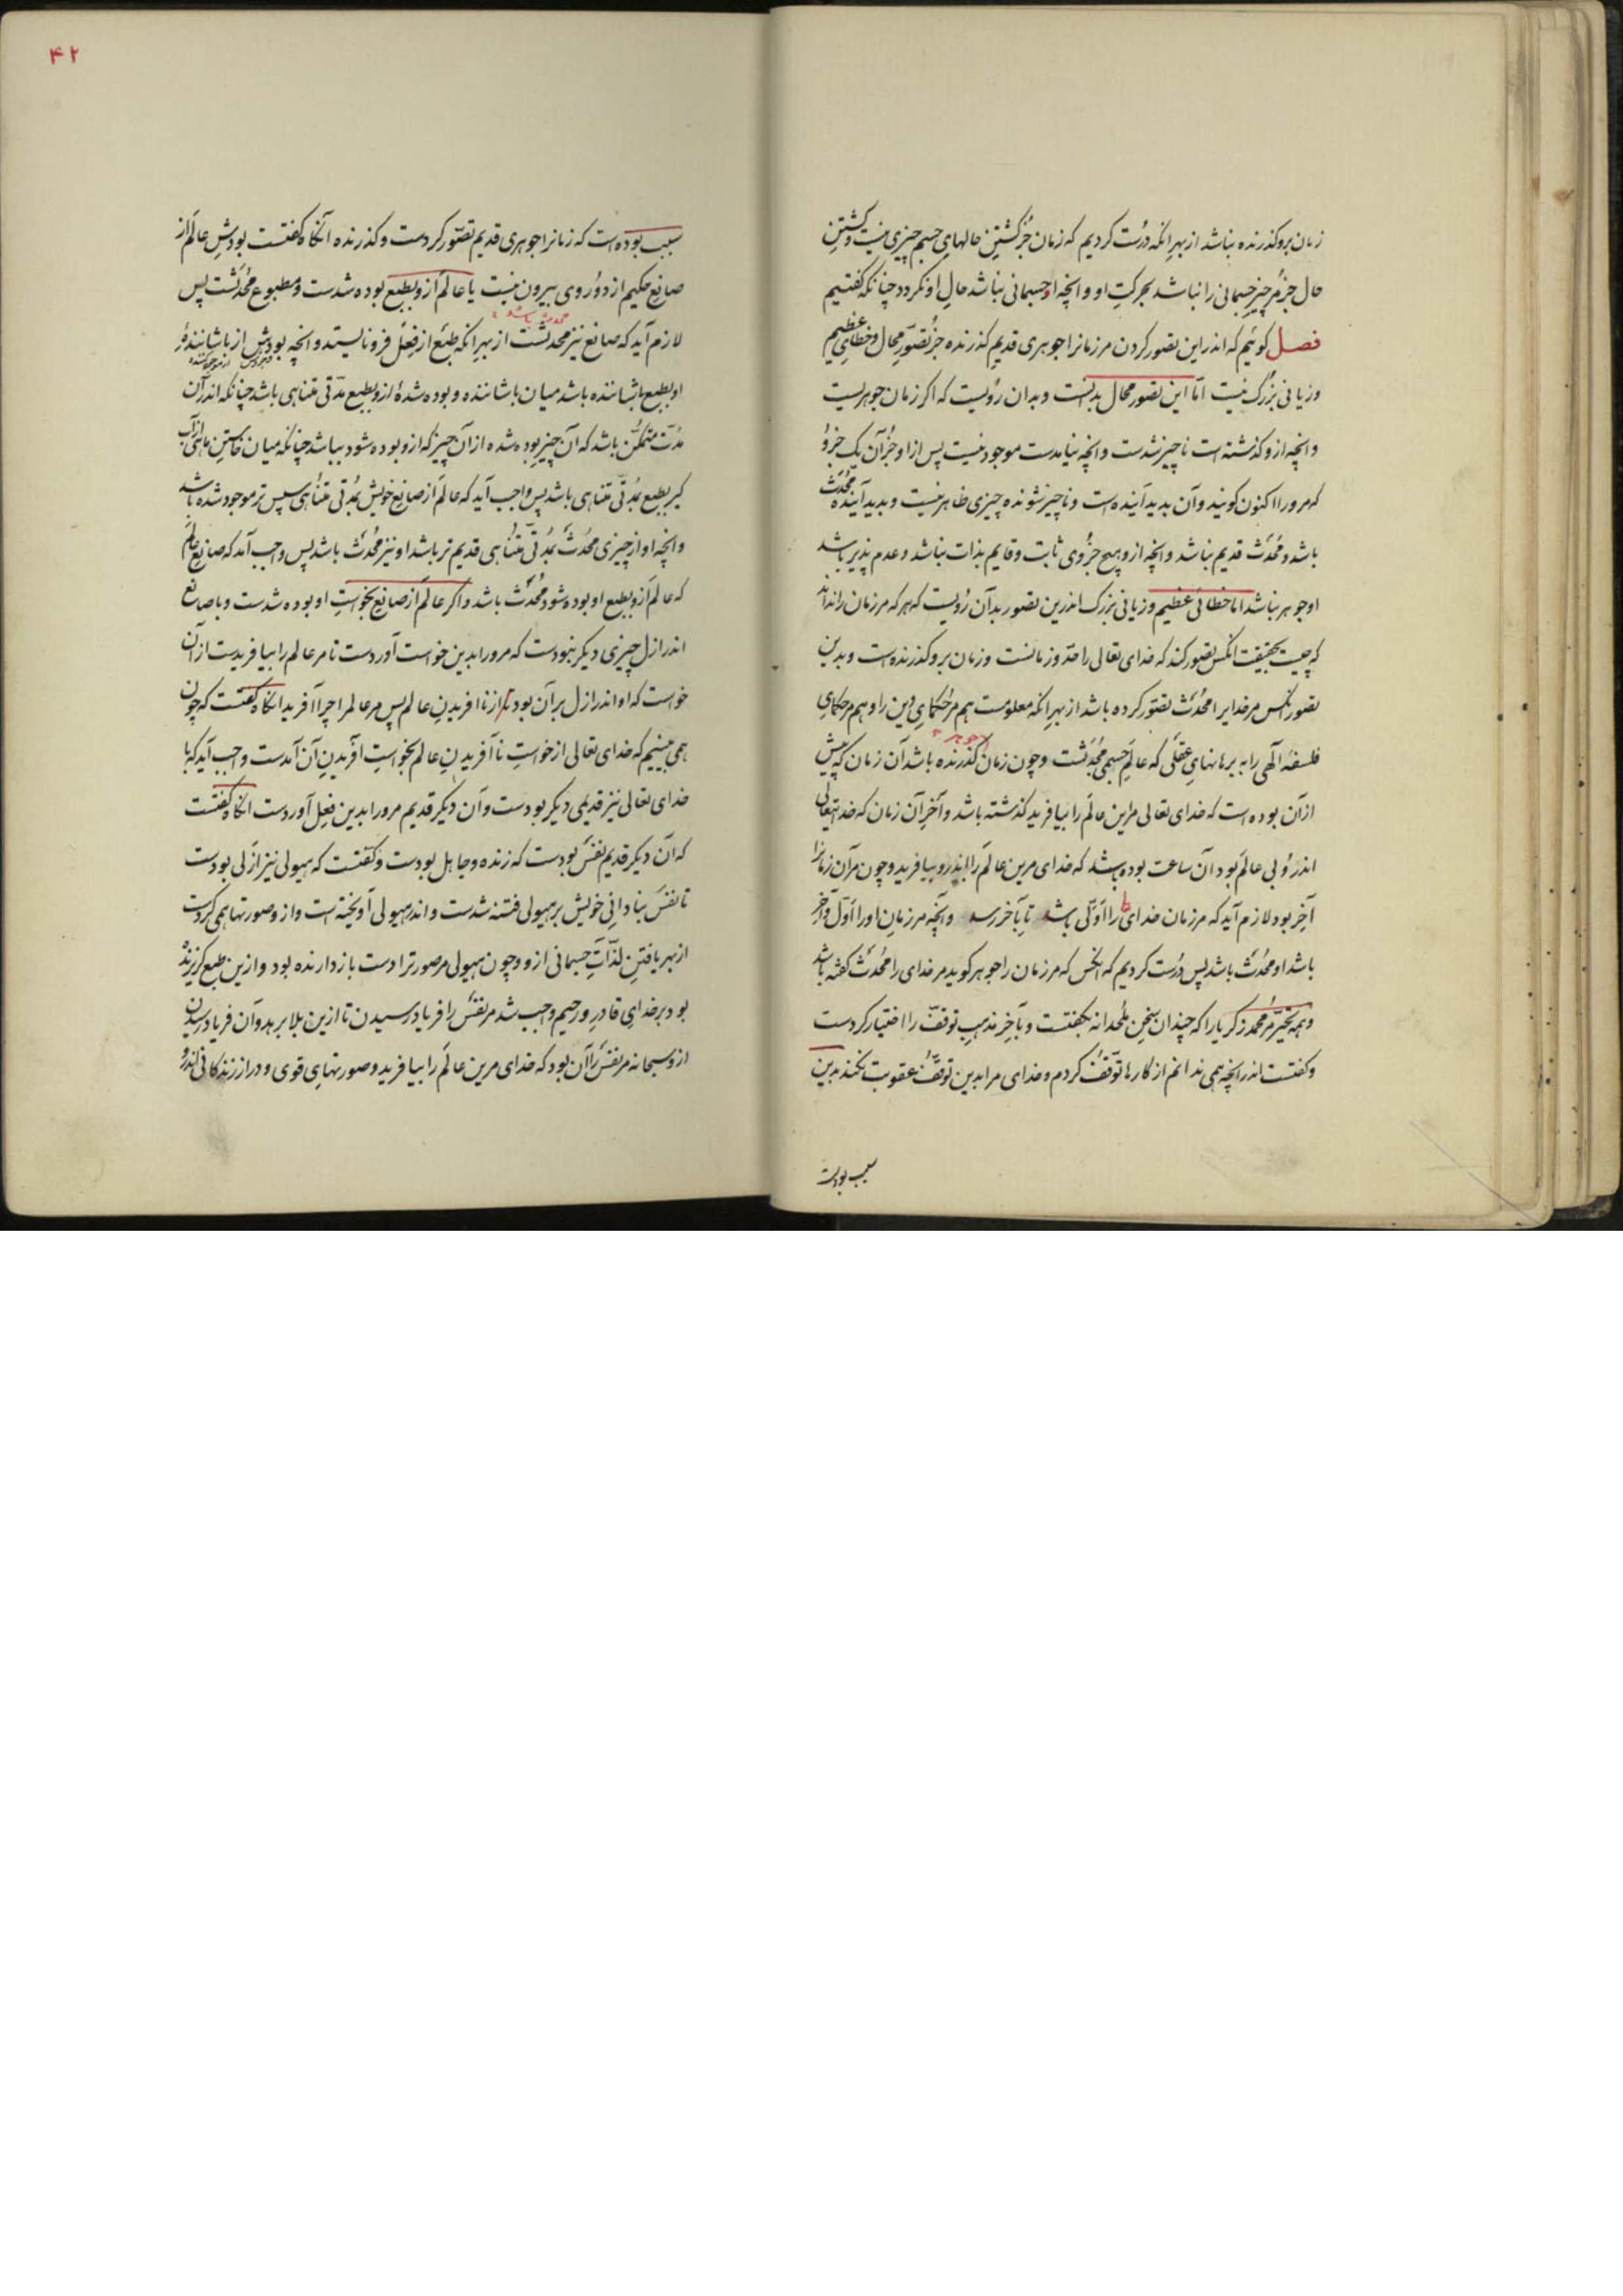 زمان برو کذرنده نباشد از بهر انکه درست کردیم که زمان جز کشتن حالهای جسم چیزی نیست و کشتن
حال جز مر چیز جسمانی را نباشد بحرکت او و انچه او جسمانی نباشد حال او نکردد چنانکه کفتیم
فصل کوئیم که اندر این تصور کردن مر زمانرا جوهری قدیم کذرنده جز تصور محال و خطای عظیم
و زیانی بزرک نیست اما این تصور محال بدانست و بدان رویست که اکر زمان جوهریست
و انچه ازو کذشته است ناچیز شدست و انچه نیامدست موجود نیست پس از او جز آن یک جزو
که مرورا اکنون کویند و آن بدید آینده است و ناچیز شونده چیزی ظاهر نیست و بدید آینده محدث
باشد و محدث قدیم نباشد و انچه ازو هیچ جزوی ثابت و قایم بذات نباشد و عدم پذیر باشد
او جوهر نباشد اما خطائی عظیم و زیانی بزرک اندرین تصور بدآن رویست که هر که مر زمان را نداند
که چیست بحقیقت انکس تصور کند که خدای تعالی را مدّ و زمانست و زمان برو کذرنده است و بدین
تصور انکس مر خدایرا محدث تصور کرده باشد از بهر انکه معلومست هم مر حکمای دین را و هم مر حکمای
فلسفهٔ الهی را به برهانهای عقلی که عالم جسمی محدثست و چون زمان کذرنده باشد آن زمان که پیش
جوهر
از آن بوده است که خدای تعالی مر این عالم را بیافرید کذشته باشد و آخر آن زمان که خدایتعالی
اندرو بی عالم بود آن ساعت بوده باشد که خدای مرین عالم را اندرو بیافرید و چون مر آن زمانرا
آخر بود لازم آید که مر زمان خدای را اوّلی باشد تا بآخر رسد و آنچه مر زمان او را اوّل و آخر
باشد او محدث باشد پس درست کردیم که انکس که مر زمان را جوهر کوید مر خدای را محدث کفته باشد
و همه تحیّر مر محمد زکریا را که چندان سخن ملحدانه بکفتست و بآخر مذهب توقف را اختیار کردست
و کفتست اندر انچه همی ندانم از کارها توقف کردم و خدای مرا بدین توقف عقوبت نکند بدین
سبب بودست
۴۲
سبب بوده است که زمانرا جوهری قدیم تصوّر کردست و کذرنده انکاه کفتست بودش عالم از
صانع حکیم از دو روی بیرون نیست یا عالم ازو بطبع بوده شدست و مطبوع محدثست پس
لازم آید که صانع نیز محدثست از بهر انکه طبع از فعل فرو نایستد و انچه بودش از باشانندهٔ
او بطبع باشاننده باشد میان باشاننده و بوده شدهٔ ازو بطبع مدّتی متناهی باشد چنانکه اندر آن
مدّت متمکن باشد که آن چیز بوده شده از آن چیز که ازو بوده شود بباشد چنانکه میان خاستن ماهی از آب
کیر بطبع مدّتی متناهی باشد پس واجب آید که عالم از صانع خویش بمدّتی متناهی سپس تر موجود شده باشد
و انچه او از چیزی محدث بمدّتی متناهی قدیم تر باشد او نیز محدث باشد پس واجب آمد که صانع عالم
که عالم ازو بطبع او بوده شود محدث باشد و اکر عالم از صانع بخواست او بوده شدست و با صانع
اندر ازل چیزی دیکر نبودست که مرورا بدین خواست آوردست تا مر عالم را بیافریدست از آن
خواست که او اندر ازل بر آن بود از نا افریدن عالم پس مر عالمرا چرا آفرید انکاه کفتست که چون
همی بینیم که خدای تعالی از خواست نا آفریدن عالم بخواست آفریدن آن آمدست واجب آید که با
خدای تعالی نیز قدیمی دیکر بودست و آن دیکر قدیم مرورا بدین فعل آوردست انکاه کفتست
که آن دیکر قدیم نفس بودست که زنده و جاهل بودست و کفتست که هیولی نیز ازلی بودست
تا نفس بنادانی خویش بر هیولی فتنه شدست و اندر هیولی آویخته است و ازو صورتها همی کردست
از بهر یافتن لذات جسمانی ازو و چون هیولی مر صورت را دست بازدارنده بود و ازین طبع کریزنده
بود بر خدای قادر و رحیم واجب شد مر نفس را فریاد رسیدن تا ازین بلا برهد و آن فریاد رسیدن
ازو سبحانه مر نفس را آن بود که خدای مرین عالم را بیافرید و صورتهای قوی و دراز زندکانی اندرو